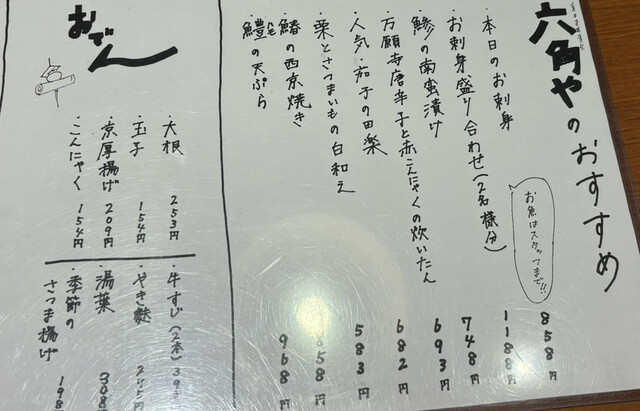 六角やのおすすめ
お魚はスタッフまで!!
・本日のお刺身 858円
・お刺身盛り合わせ(2名様分) 1188円
・鯵の南蛮漬け 748円
・万願寺唐辛子と赤こんにゃくの炊いたん 693円
・人気・茄子の田楽 682円
・栗とさつまいもの白和え 583円
・鰆の西京焼き 858円
・鱧の天ぷら 968円
おでん
・大根 253円
・玉子 154円
・京厚揚げ 209円
・こんにゃく 154円
・牛すじ(2本)
・やき麩 275円
・湯葉 308
・季節の
さつま揚げ 198